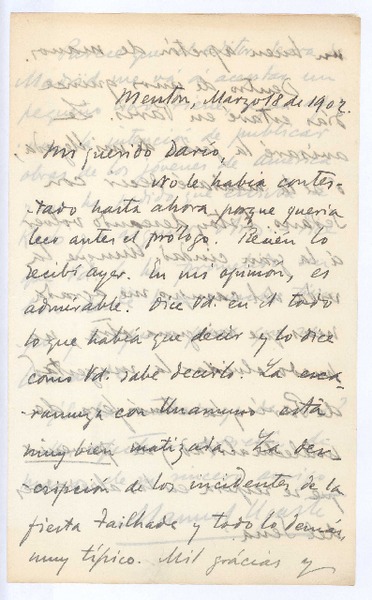 Menton, Marzo 18 de 1902.
Mi querido Dario,
No le había contes-
tado hasta ahora porque quería
leer antes el prólogo. Recien lo
recibí ayer. En mi opinion, es
admirable. Dice Vd. en el todo
lo que había que decir y lo dice
como Vd. sabe decirlo. La esca-
ramuza con Unamuno está
muy bien matizada. La des-
cripción de los incidentes de la
fiesta Tailhade y todo lo demás,
muy típico. Mil grácias y